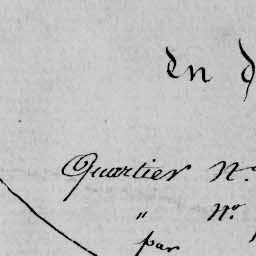 en
Quartier No.
" No.
par